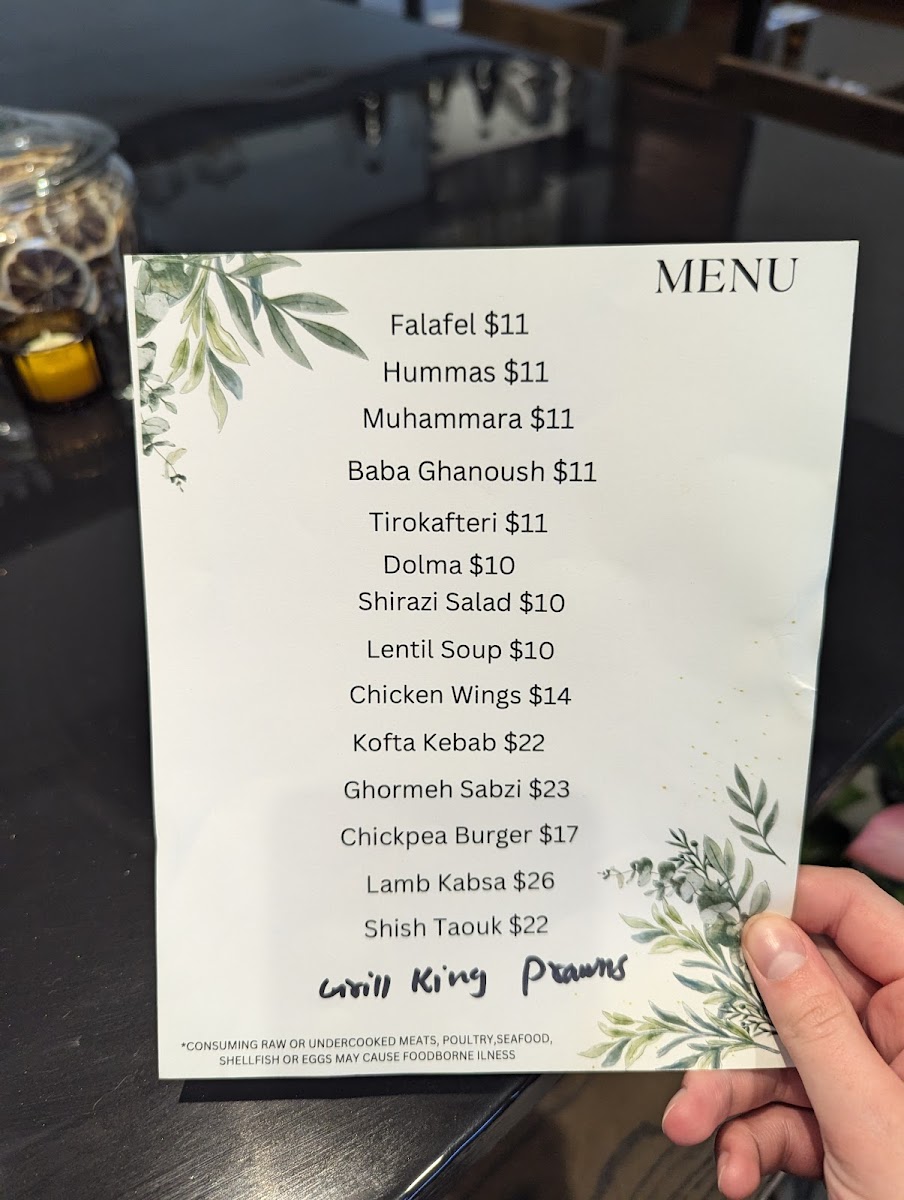 MENU
Falafel $11
Hummas $11
Muhammara $11
Baba Ghanoush $11
Tirokafteri $11
Dolma $10
Shirazi Salad $10
Lentil Soup $10
Chicken Wings $14
Kofta Kebab $22
Ghormeh Sabzi $23
Chickpea Burger $17
Lamb Kabsa $26
Shish Taouk $22
Grill King Prawns
*CONSUMING RAW OR UNDERCOOKED MEATS, POULTRY,SEAFOOD,
SHELLFISH OR EGGS MAY CAUSE FOODBORNE ILNESS